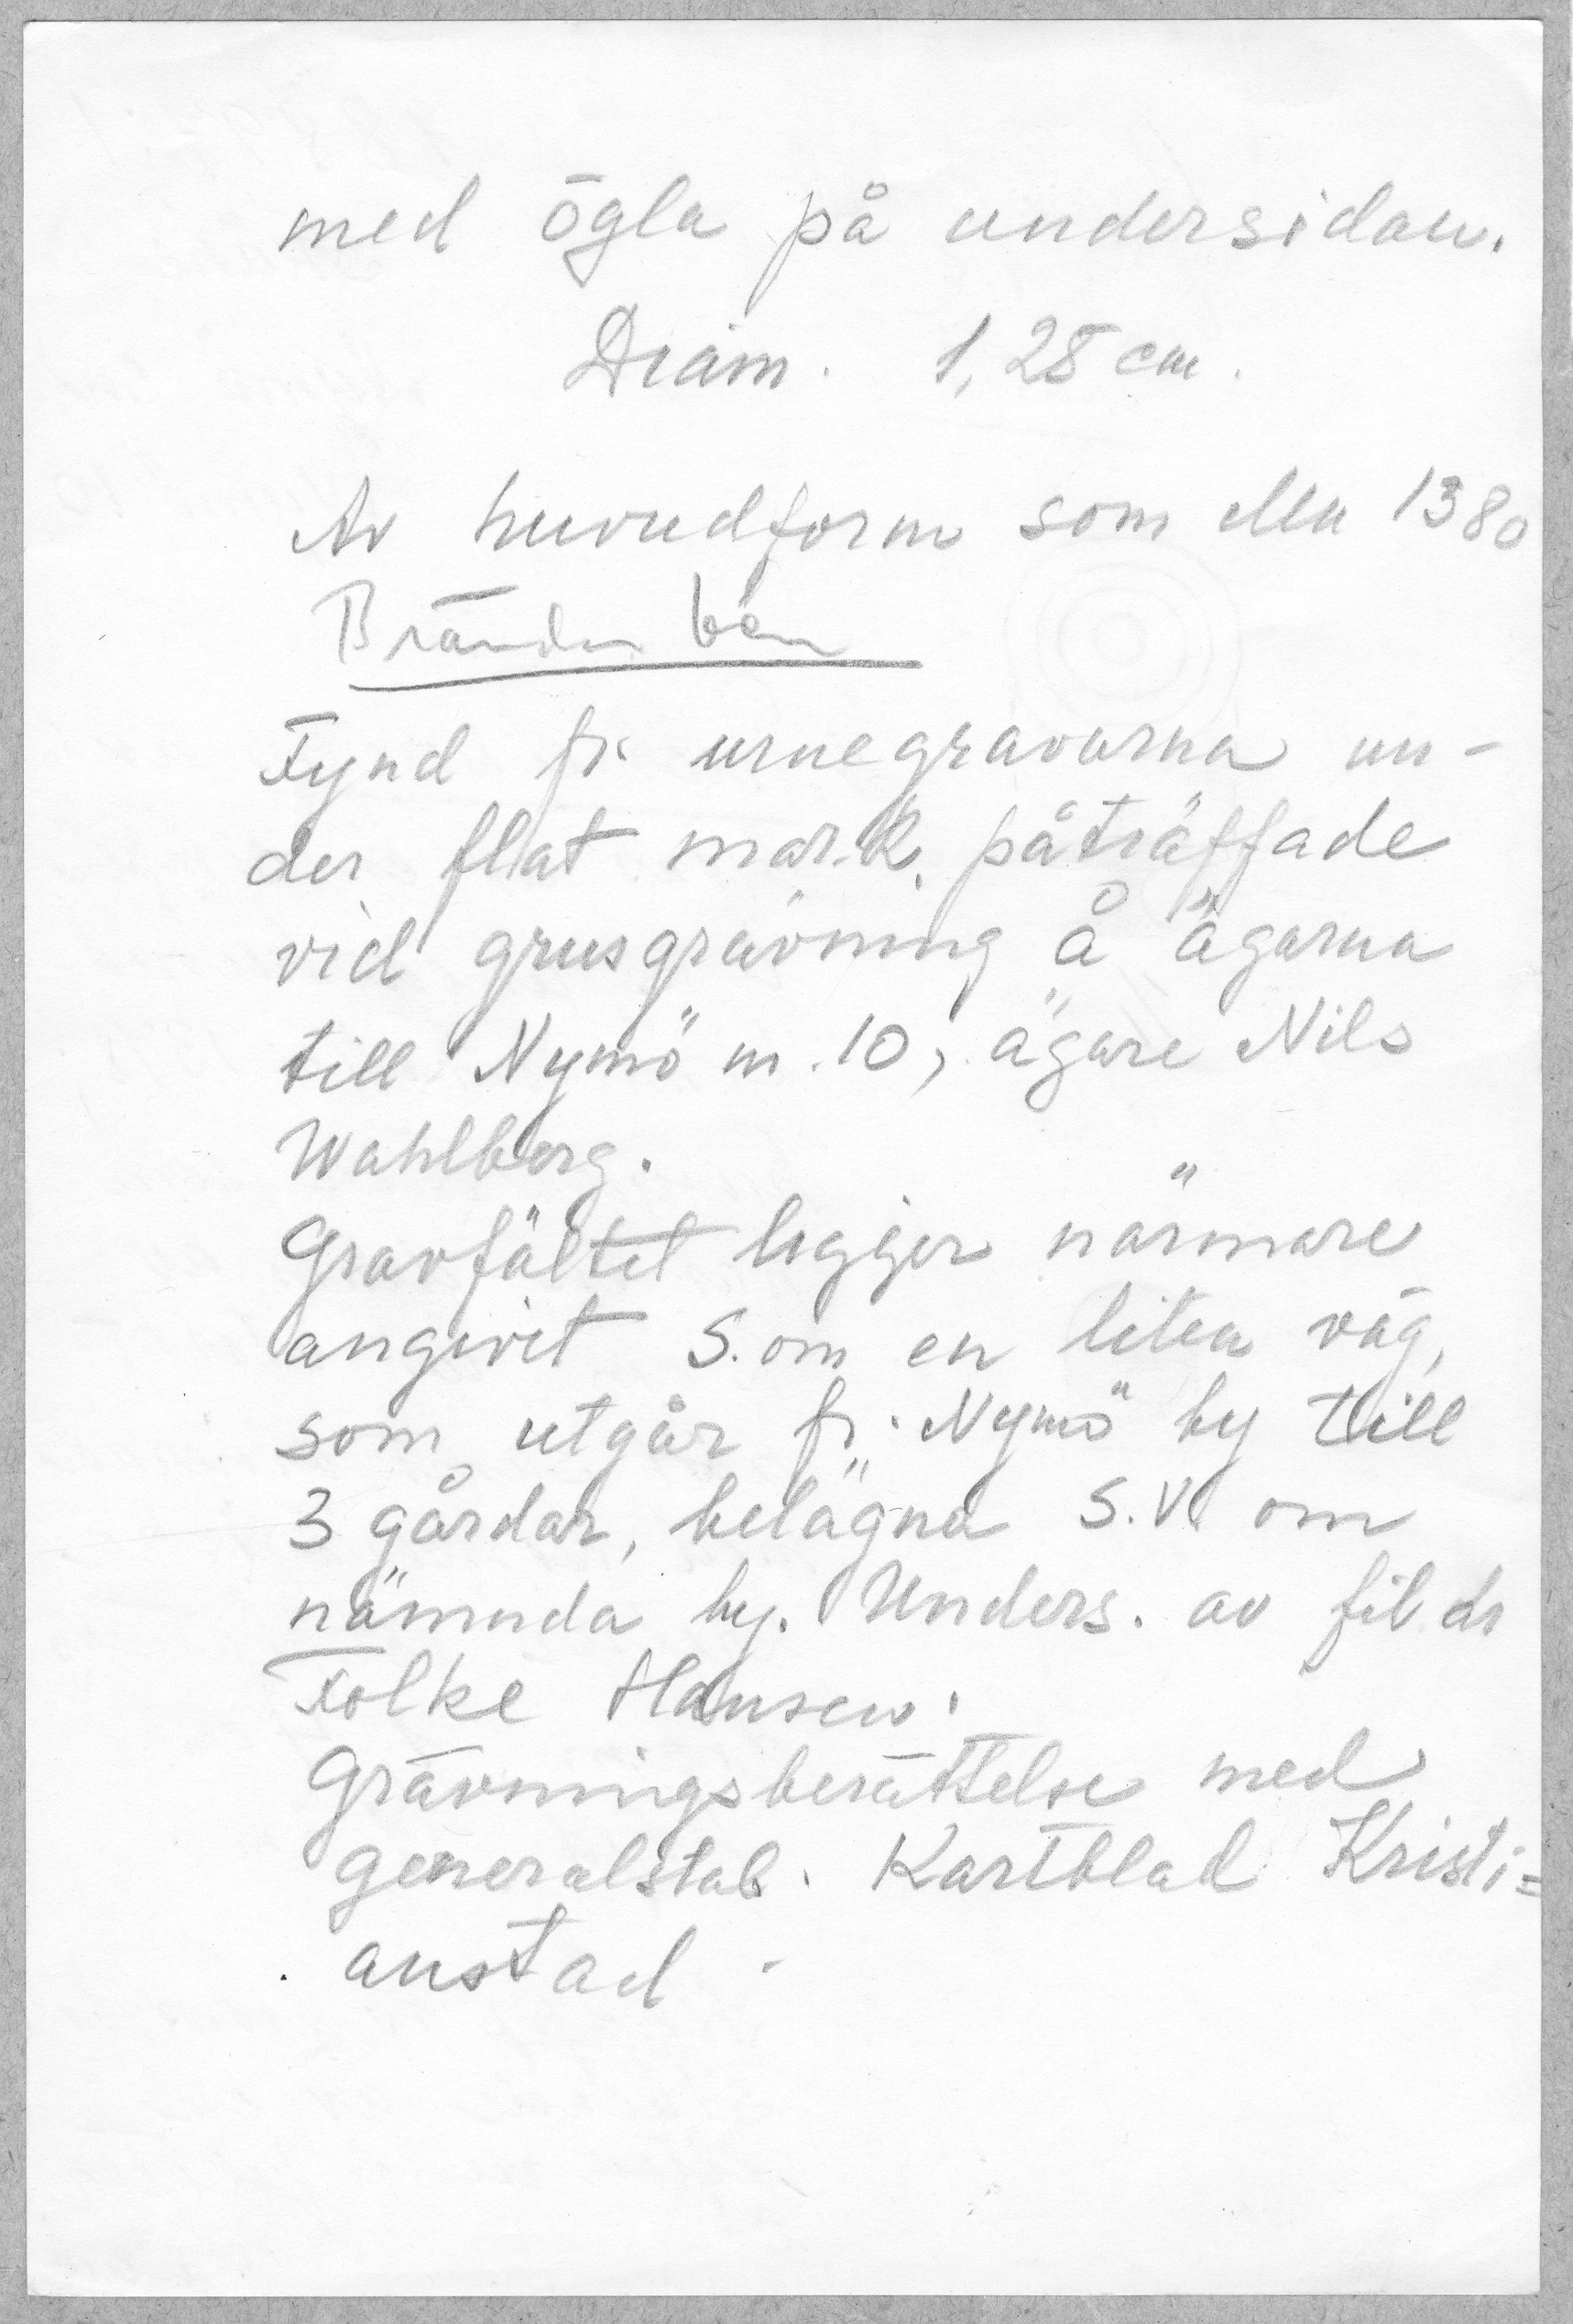 med ögla på undersidan.
Diam. 1,25 cm.
Av huvudform som Mu 1380
Brända ben
Fynd fr. urnegravarna un-
der flat mark, påträffade
vid grusgrävning å ägorna
till Nymö nr. 10, ägare Nils
Wahlberg.
Gravfältet ligger närmare
angivet S. om en liten väg,
som utgår fr. Nymö by till
3 gårdar, belägna S.V. om
nämnda by. Unders. av fil dr
Folke Hansen.
Grävningsberättelse med
generalstab. Kartblad Kristi=
anstad.